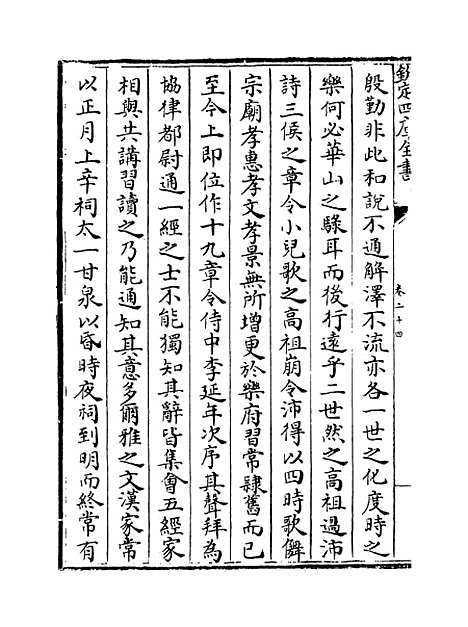 欽定四庫全書
卷二十四
殷勤非此和說不通解澤不流亦各一世之化度時之
樂何必華山之騄耳而後行遠乎二世然之高祖過沛
詩三侯之章令小兒歌之高祖崩令沛得以四時歌儛
宗廟孝惠孝文孝景無所增更於樂府習常隸舊而已
至今上即位作十九章令侍中李延年次序其聲拜為
協律都尉通一經之士不能獨知其辭皆集會五經家
相與共講習讀之乃能通知其意多爾雅之文漢家常
以正月上辛祠太一甘泉以昏時夜祠到明而終常有